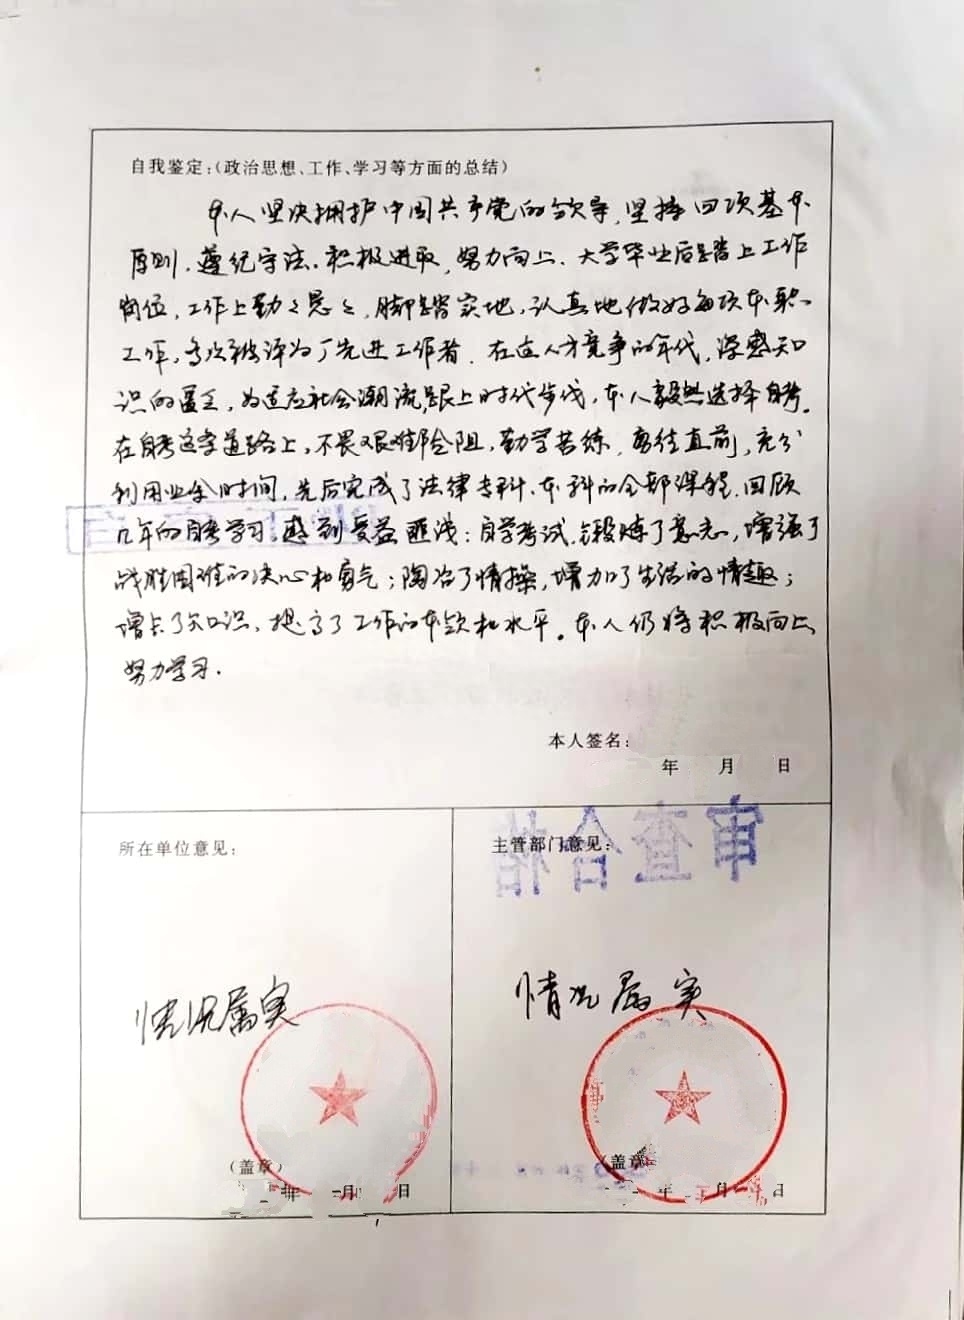 自我鉴定:(政治思想、工作、学习等方面的总结)
本人坚决拥护中国共产党的领导,坚持四项基本
原则,遵纪守法,积极进取,努力向上、大学毕业后踏上工作
岗位,工作上勤勤恳恳,脚踏实地,认真地做好每项本职
工作,多次被评为厂先进工作者,在这人才竞争的年代,深感知
识的匮乏,为适应社会潮流,跟上时代步伐,本人毅然选择自考。
在自考这字道路上,不畏艰难险阻,勤学苦练,勇往直前,充分
利用业余时间,先后完成了法律专科、本科的全部课程,回顾
几年的自考学习,感到受益匪浅:自学考试,锻炼了意志,增强了
战胜困难的决心和勇气;陶冶了情操,增加了生活的情趣;
增长了知识,提高了工作的本领和水平。本人仍将积极向上,
努力学习.
本人签名:
年 月 日
所在单位意见:
主管部门意见:
审查合格
情况属实
情况属实
(盖章)
(盖章)
年 月 日
年 月 日